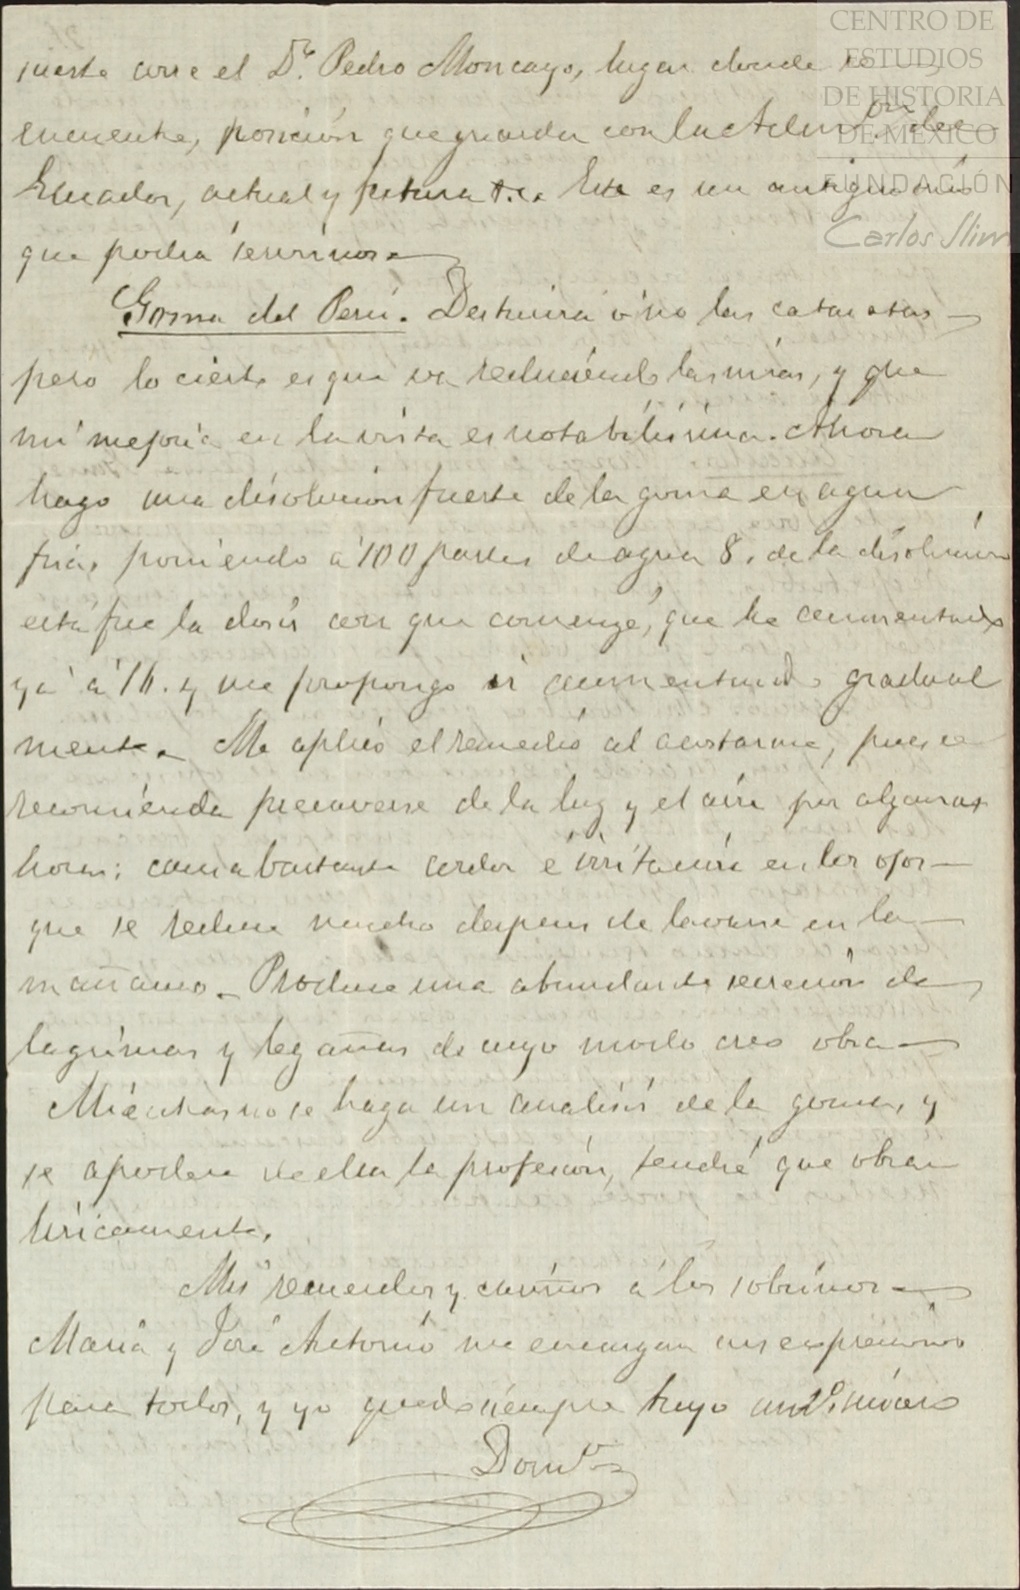 CENTRO DE
ESTUDIOS
DE HISTORIA
DE MÉXICO
FUNDACIÓN
Carlos Slim
suerte corre el Dr. Pedro Moncayo, lugar donde se
encuentre, posición que guarda con la Admon. del
Ecuador, actual y futura &c. Este es un antiguo mio
que podrá servirnos.
Goma del Perú. Destruirá ó no las cataratas
pero lo cierto es que va reduciendo las mias, y que
mi mejoria en la vista es notabilisima. Ahora
hago una disolucion fuerte de la goma en agua
fria, poniendo á 100 partes de agua 8. de la disolucion
esta fue la dosis con que comenzé, que he aumentado
ya á 16. y me propongo ir aumentando gradual
mente. Me aplico el remedio al acostarme, pues se
recomienda precaverse de la luz y el aire por algunas
horas; causa bastante ardor é irritacion en los ojos
que se reduce mucho despues de lavarse en la
mañana. Produce una abundante secrecion de
lagrimas y legañas de cuyo modo creo obra
Mientras no se haga un analisis de la goma, y
se apodere de ella la profesion, tendré que obrar
liricamente.
Mis recuerdos y cariños á los sobrinos
Maria y José Antonio me encargan sus expresiones
para todos, y yo quedo siempre tuyo
Domo.